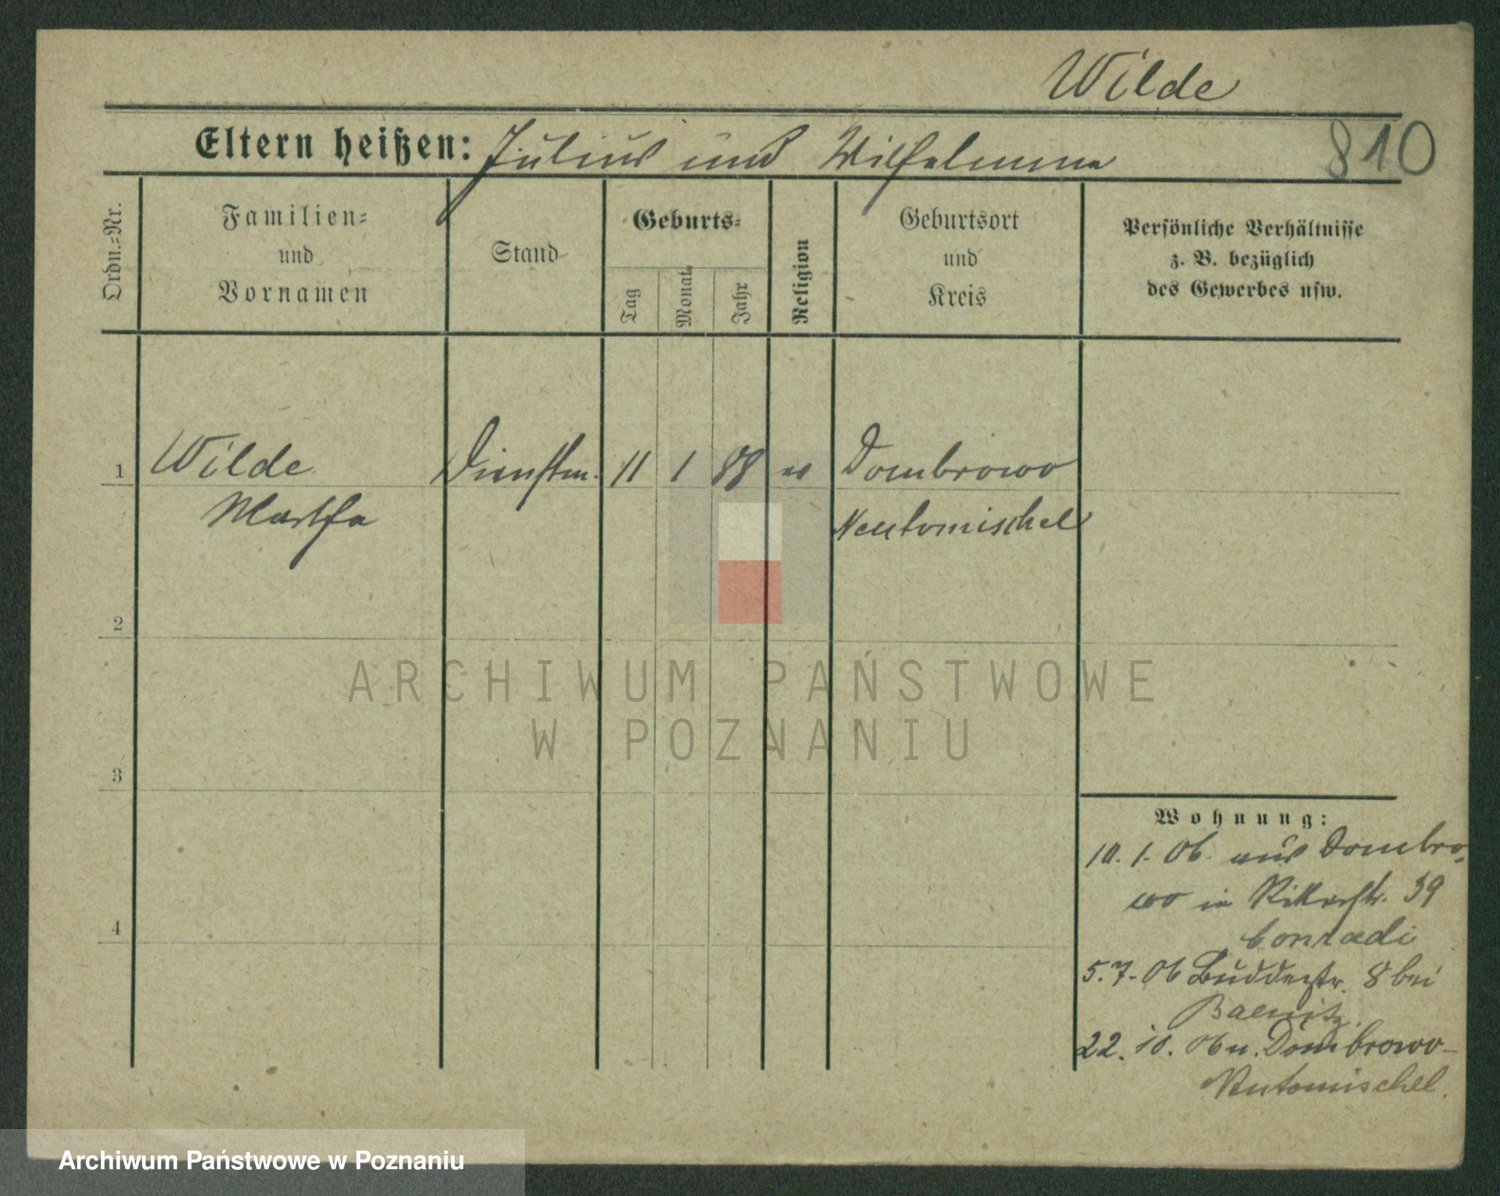 Wilde
810
Eltern heißen: Julius und Wilhelmine
Ordn.=Nr.
Familien=
und
Vornamen
Stand
Geburts=
Tag
Monat
Jahr
Religion
Geburtsort
und
Kreis
Persönliche Verhältnisse
z. B. bezüglich
des Gewerbes usw.
1 Wilde Dienstm. 11 1 88 Dombrowo
Martha Neutomischel
2
3
4
Wohnung:
10. 1. 06. aus Dombro-
wo in Ritterstr. 39
Conradi
5. 7. 06 Buddestr. 8 bei
22. 10. 06 n. Dombrowo-
Neutomischel.
ARCHIWUM PAŃSTWOWE
W POZNANIU
Archiwum Państwowe w Poznaniu